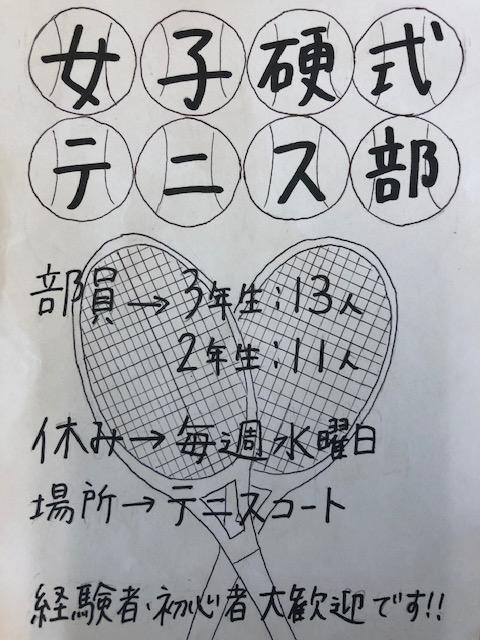 女子硬式
テニス部
部員→3年生:13人
2年生:11人
休み→毎週水曜日
場所→テニスコート
経験者・初心者大歓迎です!!